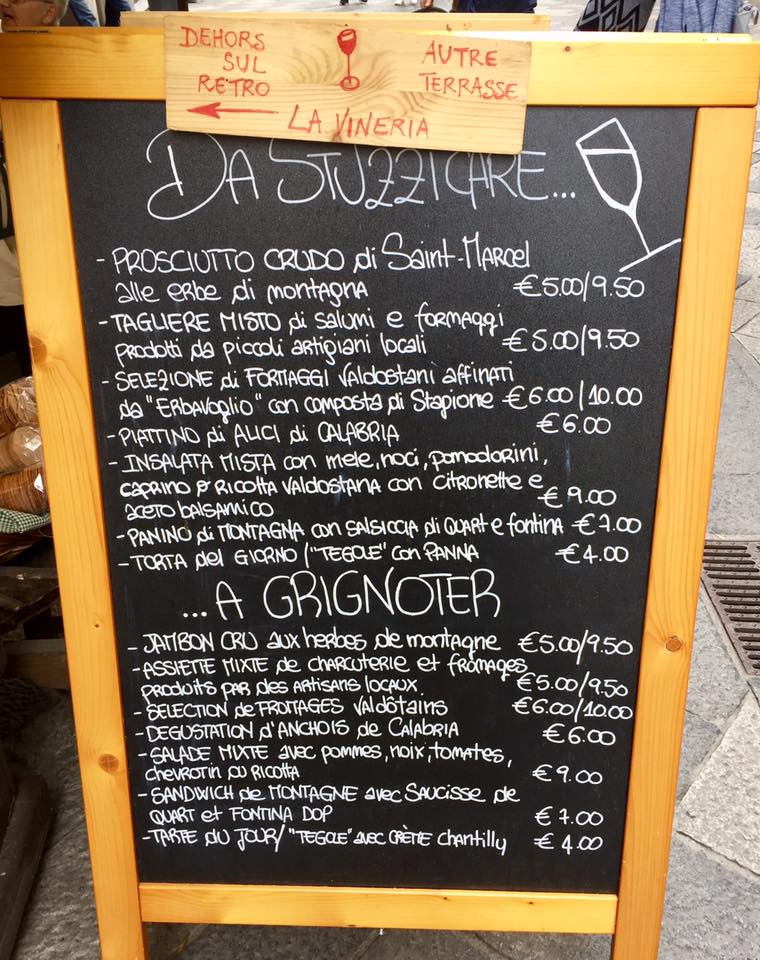 DEHORS SUL RETRO
AUTRE TERRASSE
LA VINERIA
DA STUZZICARE...
- PROSCIUTTO CRUDO di Saint-Marcel
alle erbe di montagna €5.00/9.50
- TAGLIERE MISTO di salumi e formaggi
prodotti da piccoli artigiani locali €5.00/9.50
- SELEZIONE di FORMAGGI Valdostani affinati
da "ERBAVOGLIO" con composta di Stagione €6.00/10.00
- PIATTINO di ALICI di CALABRIA €6.00
- INSALATA MISTA con mele, noci, pomodorini,
caprino o RICOTTA VALDOSTANA con citronette e
aceto balsamico €9.00
- PANINO di MONTAGNA con SALSICCIA di QUART e fontina €7.00
- TORTA del GIORNO / "TEGOLE" con PANNA €4.00
...A GRIGNOTER
- JAMBON CRU aux herbes de montagne €5.00/9.50
- ASSIETTE MIXTE de charcuterie et fromages
produits par des artisans locaux. €5.00/9.50
- SELECTION de FROMAGES Valdôtains €6.00/10.00
- DEGUSTATION d'ANCHOIS de CALABRIA €6.00
- SALADE MIXTE avec pommes, noix, tomates,
chevrotin ou RICOTTA €9.00
- SANDWICH de MONTAGNE avec Saucisse de
QUART et FONTINA DOP €7.00
- TARTE DU JOUR/ "TEGOLE" avec CRÈME Chantilly €4.00